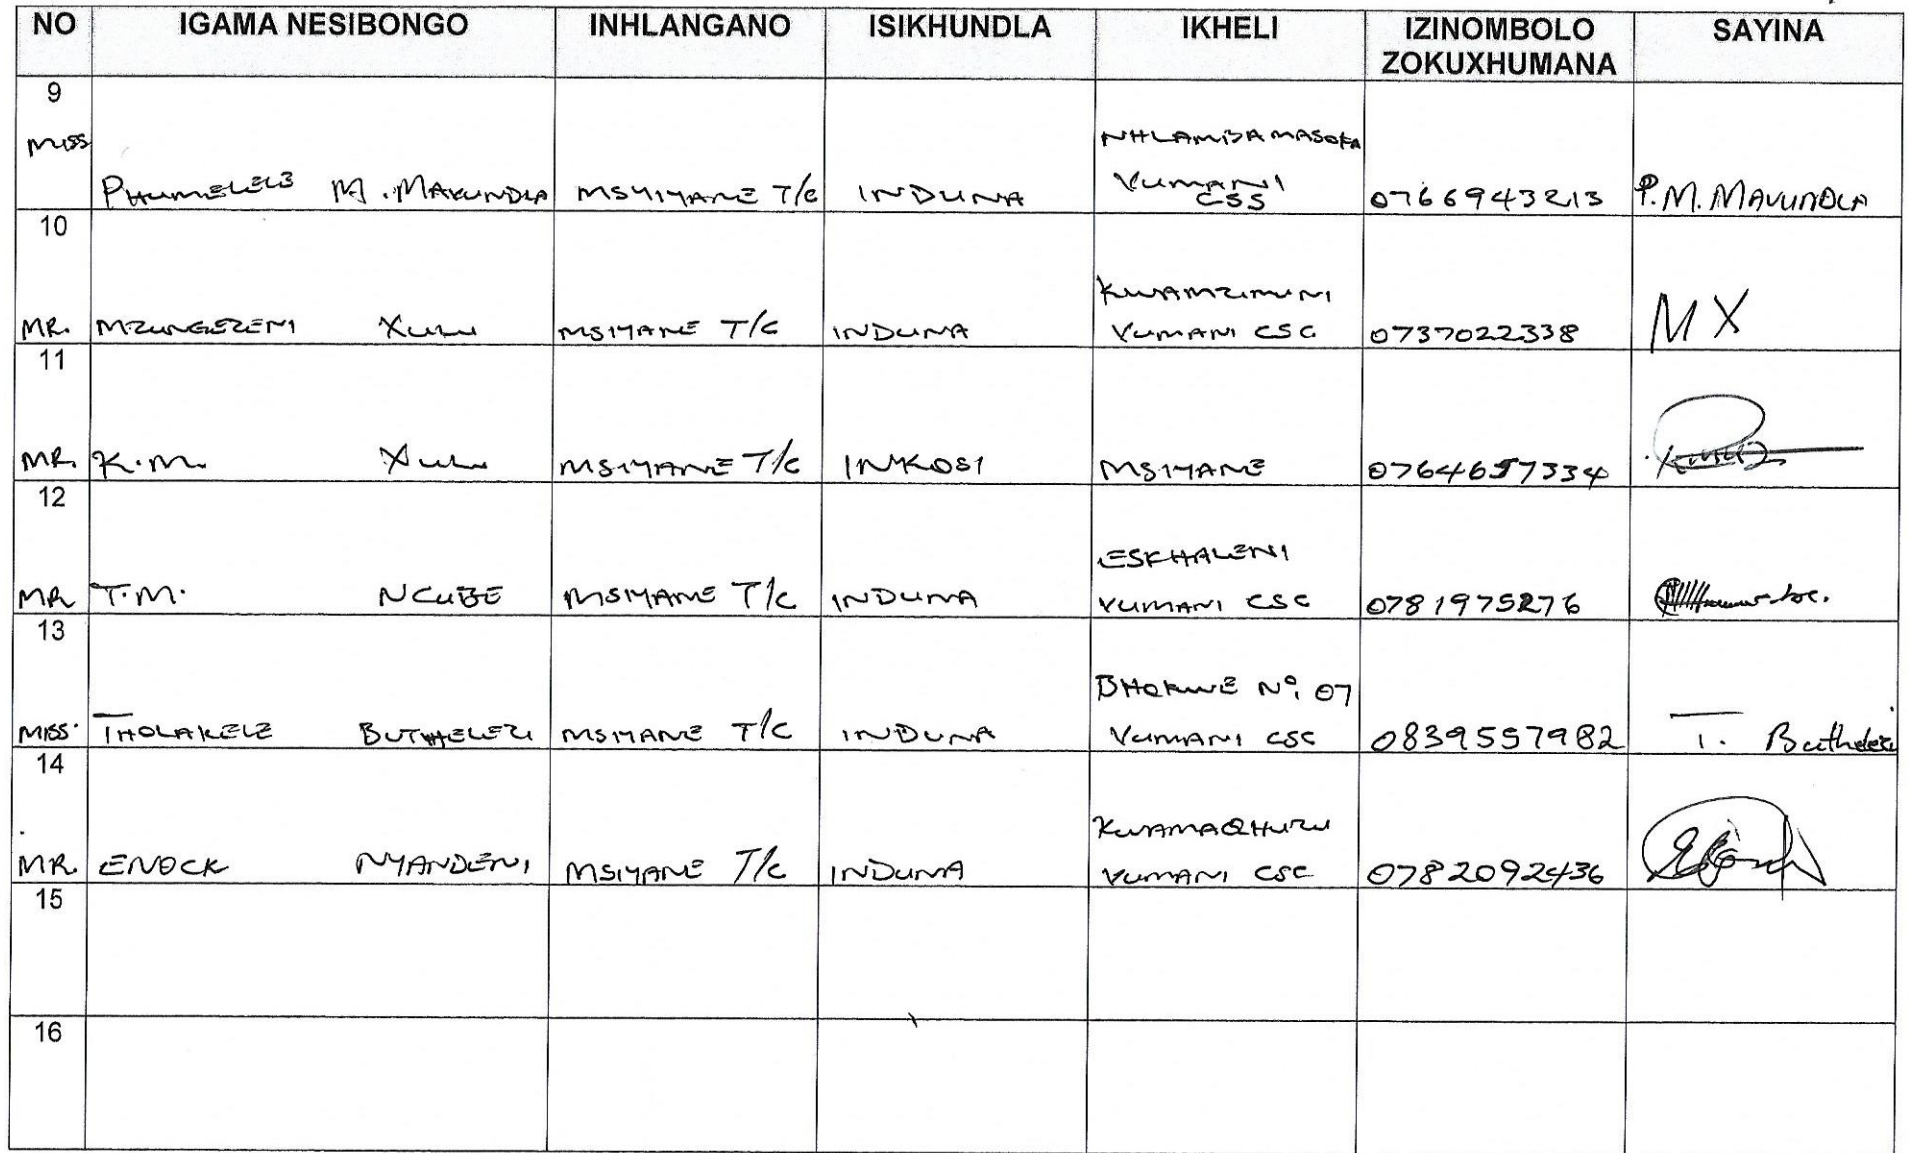 NO IGAMA NESIBONGO INHLANGANO ISIKHUNDLA IKHELI IZINOMBOLO ZOKUXHUMANA SAYINA
9
MISS PHUMELELE M. MAVUNDLA MSIYANE T/C INDUNA NHLAMBAMASOKA VUMANI CSS 0766943213 P.M. MAVUNDLA
10
MR. MZUNGEZENI XULU MSIYANE T/C INDUNA KWAMZIMUNI VUMANI CSC 0737022338 M X
11
MR. K.M. XULU MSIYANE T/C INKOSI MSIYANE 0764657334
12
MR T.M. NCUBE MSIYANE T/C INDUNA ESKHALENI VUMANI CSC 0781975276
13
MISS. THOLAKELE BUTHELEZI MSIYANE T/C INDUNA Nº 07 VUMANI CSC 0839557982 T. Buthelezi
14
MR. ENOCK NYANDENI MSIYANE T/C INDUNA KWAMAQHUZU VUMANI CSC 0782092436
15
16